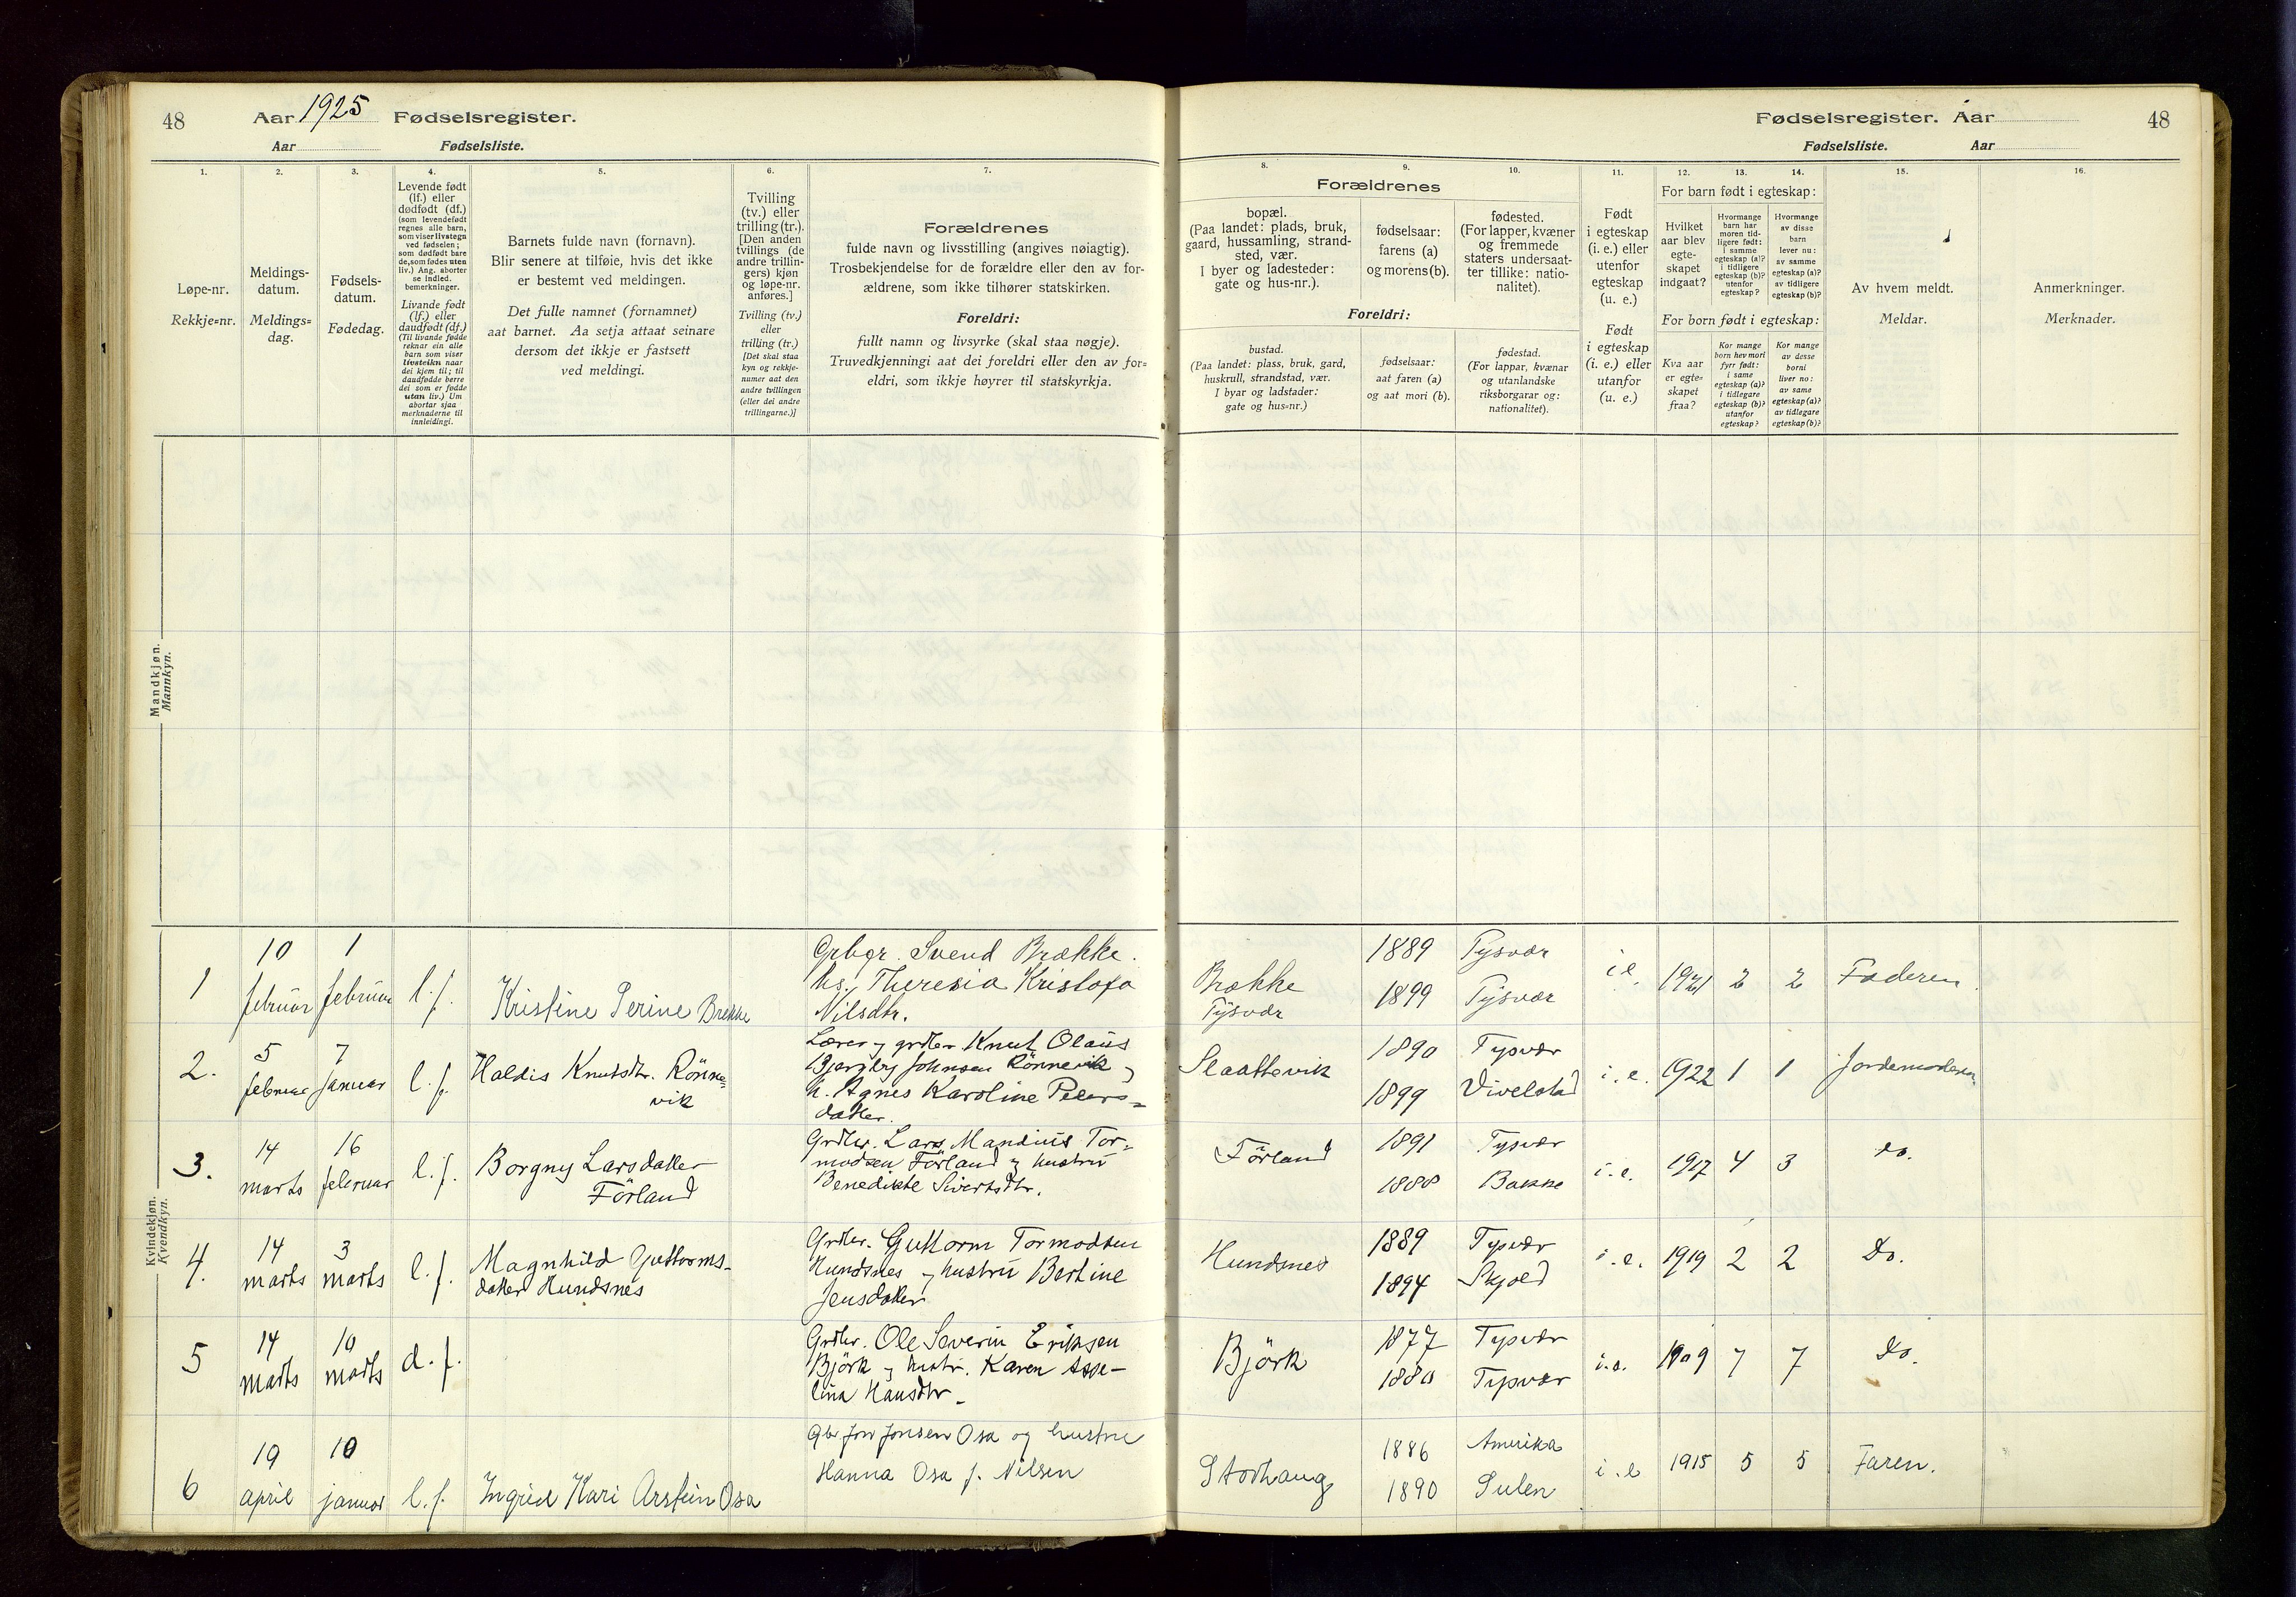 48
Aar 1925 Fødselsregister.
Aar Fødselsliste.
Fødselsregister. Aar
48
Fødselsliste. Aar
1. 2. 3. 4. 5. 6. 7. 8. 9. 10. 11. 12. 13. 14. 15. 16.
Løpe-nr.
Rekkje=nr.
Meldings-
datum.
Meldings=
dag.
Fødsels-
datum.
Fødedag.
Levende født
(lf.) eller
dødfødt (df.)
(som levendefødt
regnes alle barn,
som viser livstegn
ved fødselen;
som dødfødt bare
de, som fødes uten
liv.) Ang. aborter
se indled.
bemerkninger.
Livande født
(lf.) eller
daudfødt (df.)
(Til livande fødde
reknar ein alle
barn som viser
livsteikn naar
dei kjem til; til
daudfødde berre
dei som er fødde
utan liv.) Um
abortar sjaa
merknaderne til
innleidingi.
Barnets fulde navn (fornavn).
Blir senere at tilføie, hvis det ikke
er bestemt ved meldingen.
Det fulle namnet (fornamnet)
aat barnet. Aa setja attaat seinare
dersom det ikkje er fastsett
ved meldingi.
Tvilling
(tv.) eller
trilling (tr.).
[Den anden
tvillings (de
andre trillin-
gers) kjøn
og løpe-nr.
anføres.]
Tvilling (tv.)
eller
trilling (tr.)
[Det skal staa
kyn og rekkje-
numer aat den
andre tvillingen
(eller dei andre
trillingarne.)]
Forældrenes
fulde navn og livsstilling (angives nøiagtig).
Trosbekjendelse for de forældre eller den av for-
ældrene, som ikke tilhører statskirken.
Foreldri:
fullt namn og livsyrke (skal staa nøgje).
Truvedkjenningi aat dei foreldri eller den av for=
eldri, som ikkje høyrer til statskyrkja.
Forældrenes
bopæl.
(Paa landet: plads, bruk,
gaard, hussamling, strand-
sted, vær.
I byer og ladesteder:
gate og hus-nr.).
fødselsaar:
farens (a)
og morens (b).
fødested.
(For lapper, kvæner
og fremmede
staters undersaat-
ter tillike: natio-
nalitet).
Foreldri:
bustad.
(Paa landet: plass, bruk, gard,
huskrull, strandstad, vær.
I byar og ladstader:
gate og hus=nr.)
fødselsaar:
aat faren (a)
og aat mori (b).
fødestad.
(For lappar, kvænar
og utanlandske
riksborgarar og:
nationalitet).
Født
i egteskap
(i. e.) eller
utenfor
egteskap
(u. e.)
Født
i egteskap
(i. e.) eller
utanfor
(u. e.)
For barn født i egteskap:
Hvilket
aar blev
egte-
skapet
indgaat?
Hvormange
barn har
moren tid-
ligere født:
i samme
egteskap (a)?
i tidligere
egteskap (b)?
utenfor
egteskap?
Hvormange
av disse
barn
lever nu:
av samme
egteskap (a)?
av tidligere
egteskap (b)?
For born født i egteskap:
Kva aar
er egte=
skapet
fraa?
Kor mange
born hev mori
fyrr født:
i same
egteskap (a)?
i tidlegare
egteskap (b)?
utanfor
egteskap?
Kor mange
av desse
borni
liver no:
av same
egteskap (a)?
av tidlegare
egteskap (b)?
Av hvem meldt.
Meldar.
Anmerkninger.
Merknader.
Mandkjøn.
Mannkyn.
Kvindekjøn.
Kvendkyn.
1 10 februar 1 februar l. f. Kristine Serine Brekke
Grbgr. Svend Brække.
hs. Theresia Kristofa
Nilsdtr.
Brække Tysvær 1889 Tysvær 1899 Tysvær i e. 1921 2 2 Faderen.
2. 5 februar 7 januar l. f. Haldis Knutsdtr. Rönne=
vik
Lærer og grdbr Knut Olaüs
Bjergby Johnsen Rönnevik og
h. Agnes Karoline Peders=
datter.
Slaattevik 1890 Tysvær 1899 i. e. 1922 1 1 Jordemoderen
3. 14 marts 16 februar l. f. Borgny Larsdatter
Förland
Grdbr. Lars Mandius Tor=
modsen Förland og hustrü
Benedikte Sivertsdtr.
Förland 1891 Tysvær 1888 Bokne i. e. 1917 4 3 do.
4. 14 marts 3 marts l. f. Magnhild Guttorms-
datter Hundsnes
Grdbr. Guttorm Tormodsen
Hundsnes og hustrü Bertine
Jensdatter
Hundsnes 1889 Tysvær 1894 Skjold i. e. 1919 2 2 Do.
5 14 marts 10 marts d. f.
Grdbr. Ole Severin Eriksen
Björk og hustr. Karen Asse-
lina Hansdtr.
Björk 1877 Tysvær 1880 Tysvær i. e. 1909 7 7 do.
6 19 april 10 januar l. f. Ingrid Kari Arstein Osa
Gbr Jon Jonsen Osa og hustru
Hanna Osa f. Nilsen
Storhaug 1886 Amerika 1890 Sulen i. e 1915 5 5 Faren.